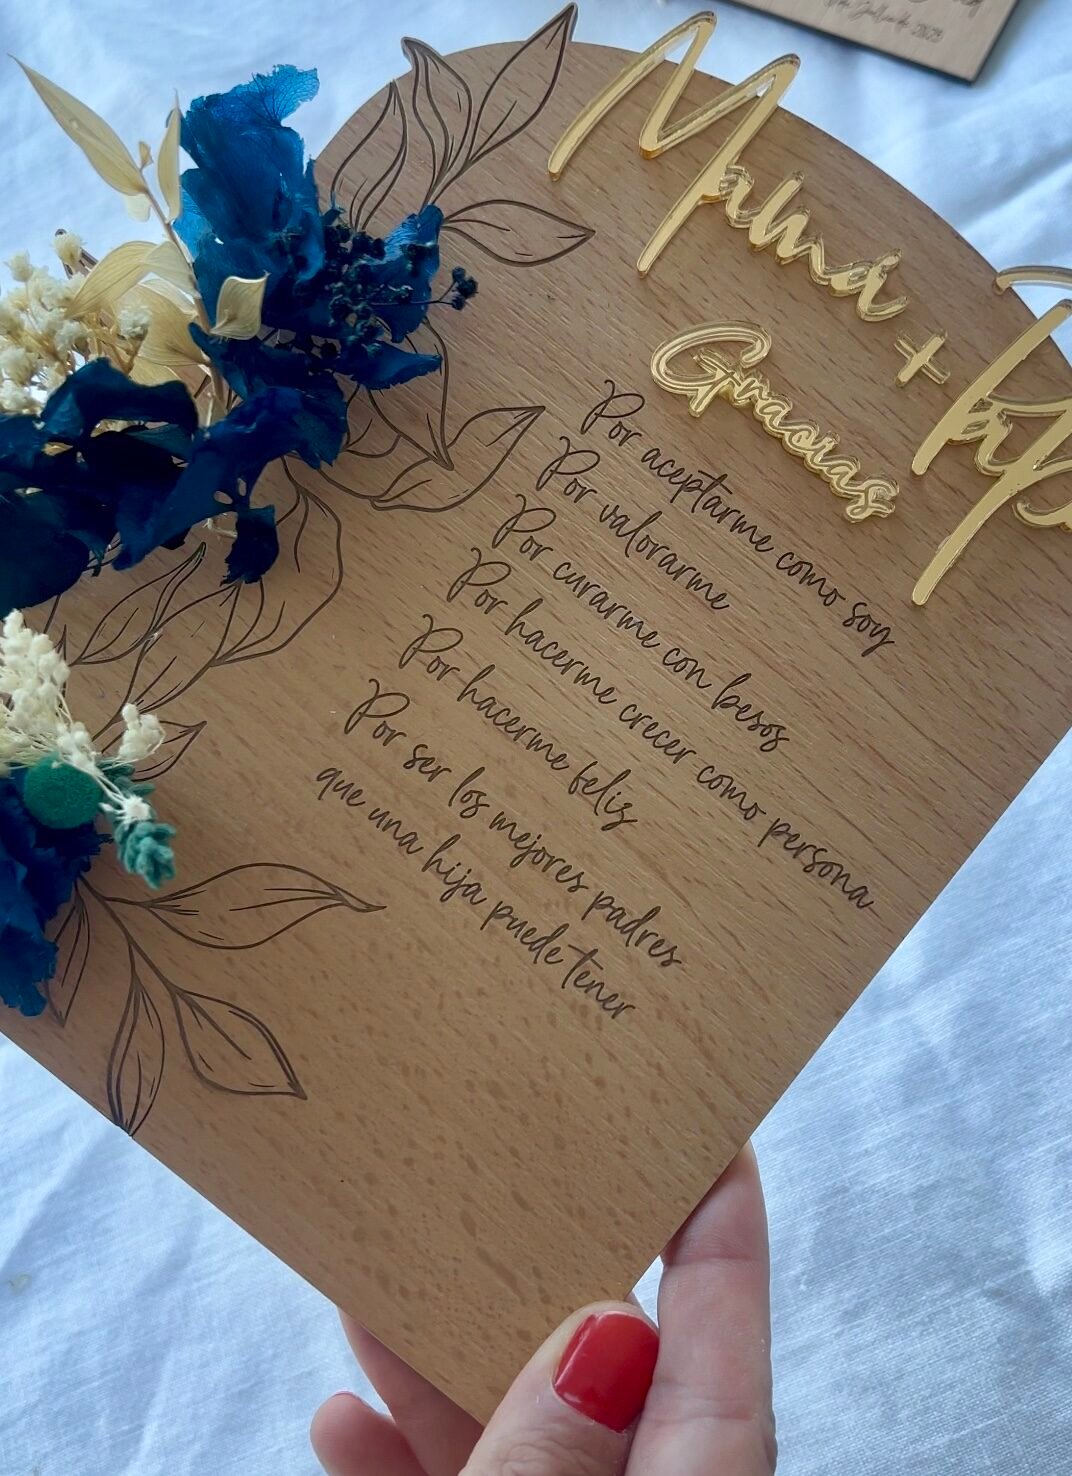 Mamá + Pap
Gracias
Por aceptarme como soy
Por valorarme
Por curarme con besos
Por hacerme crecer como persona
Por hacerme feliz
Por ser los mejores padres
que una hija puede tener